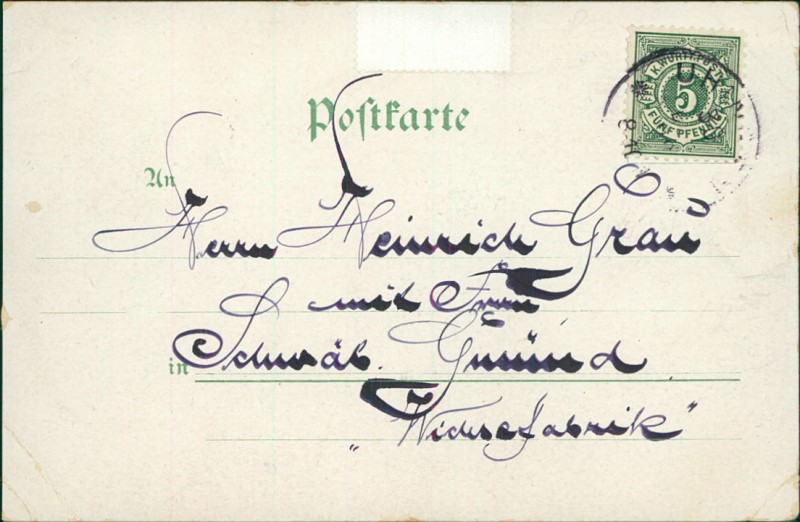 K. WÜRTT. POST
5
FÜNF PFENNIG
Postkarte
An
Herrn Heinrich Grau
mit Frau
in Schwäb. Gmünd
„Wichsefabrik"